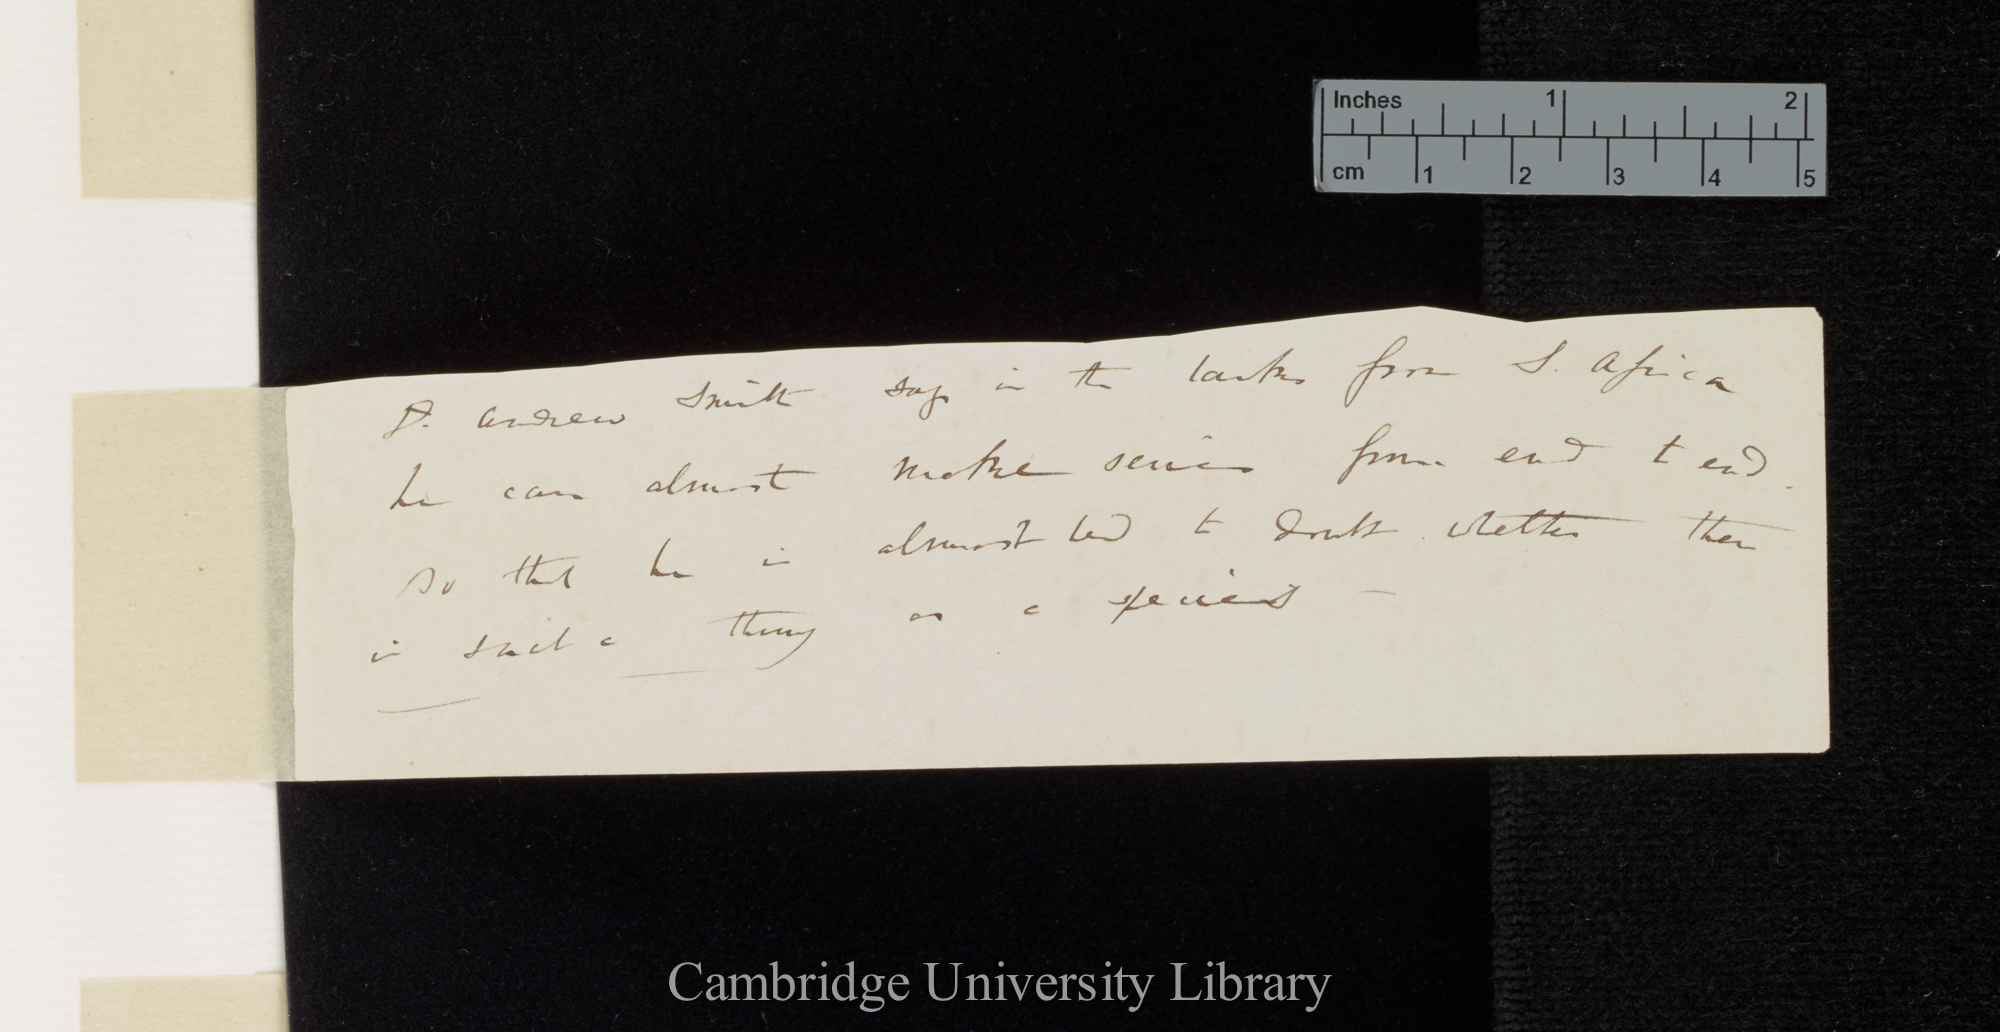 Inches 1 2
cm 1 2 3 4 5
D. Andrew Smith says in the larks from S. Africa
he can almost make series from end to end.
so that he is almost led to doubt whether there
is such a thing as a species —
Cambridge University Library